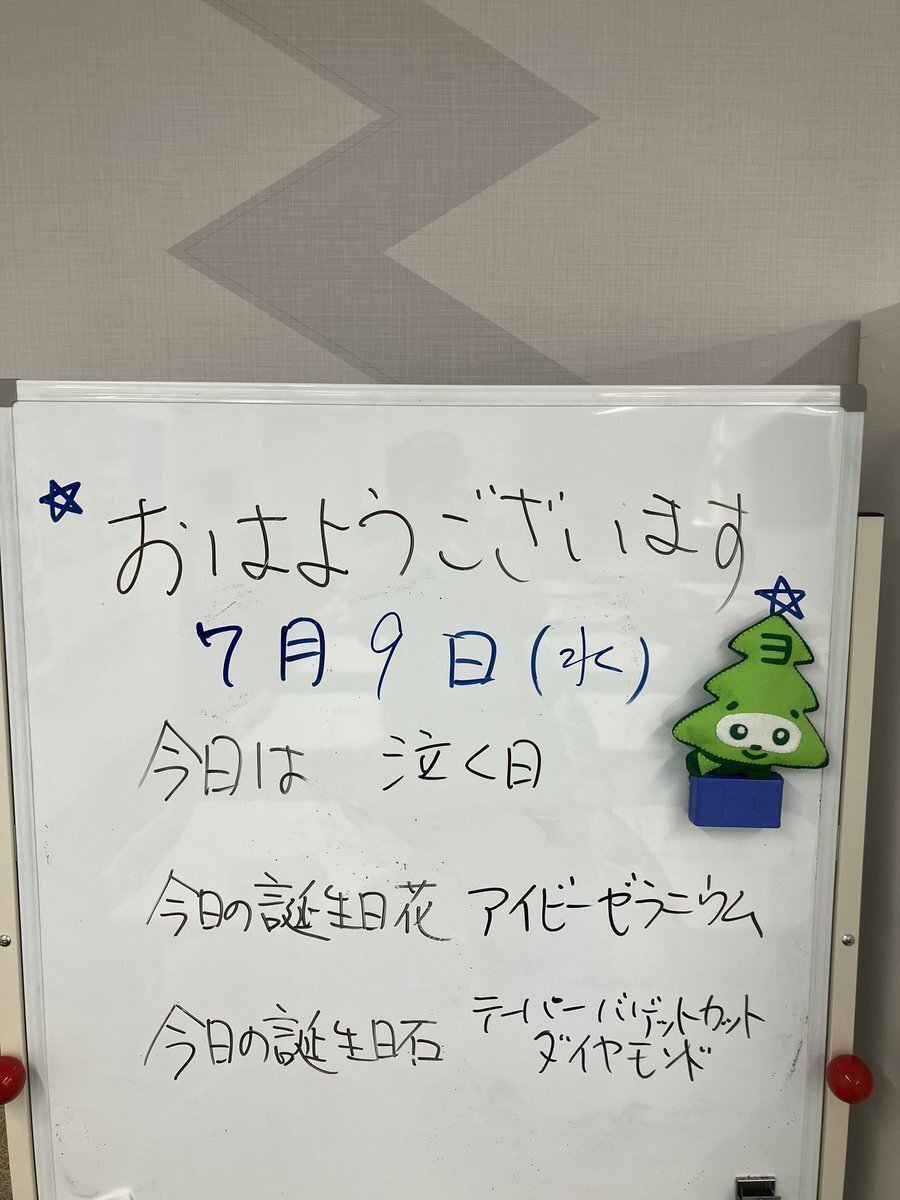 おはようございます
7月9日(水)
ヨ
今日は 泣く日
今日の誕生日花 アイビーゼラニウム
今日の誕生日石 テーパーバゲットカット
ダイヤモンド